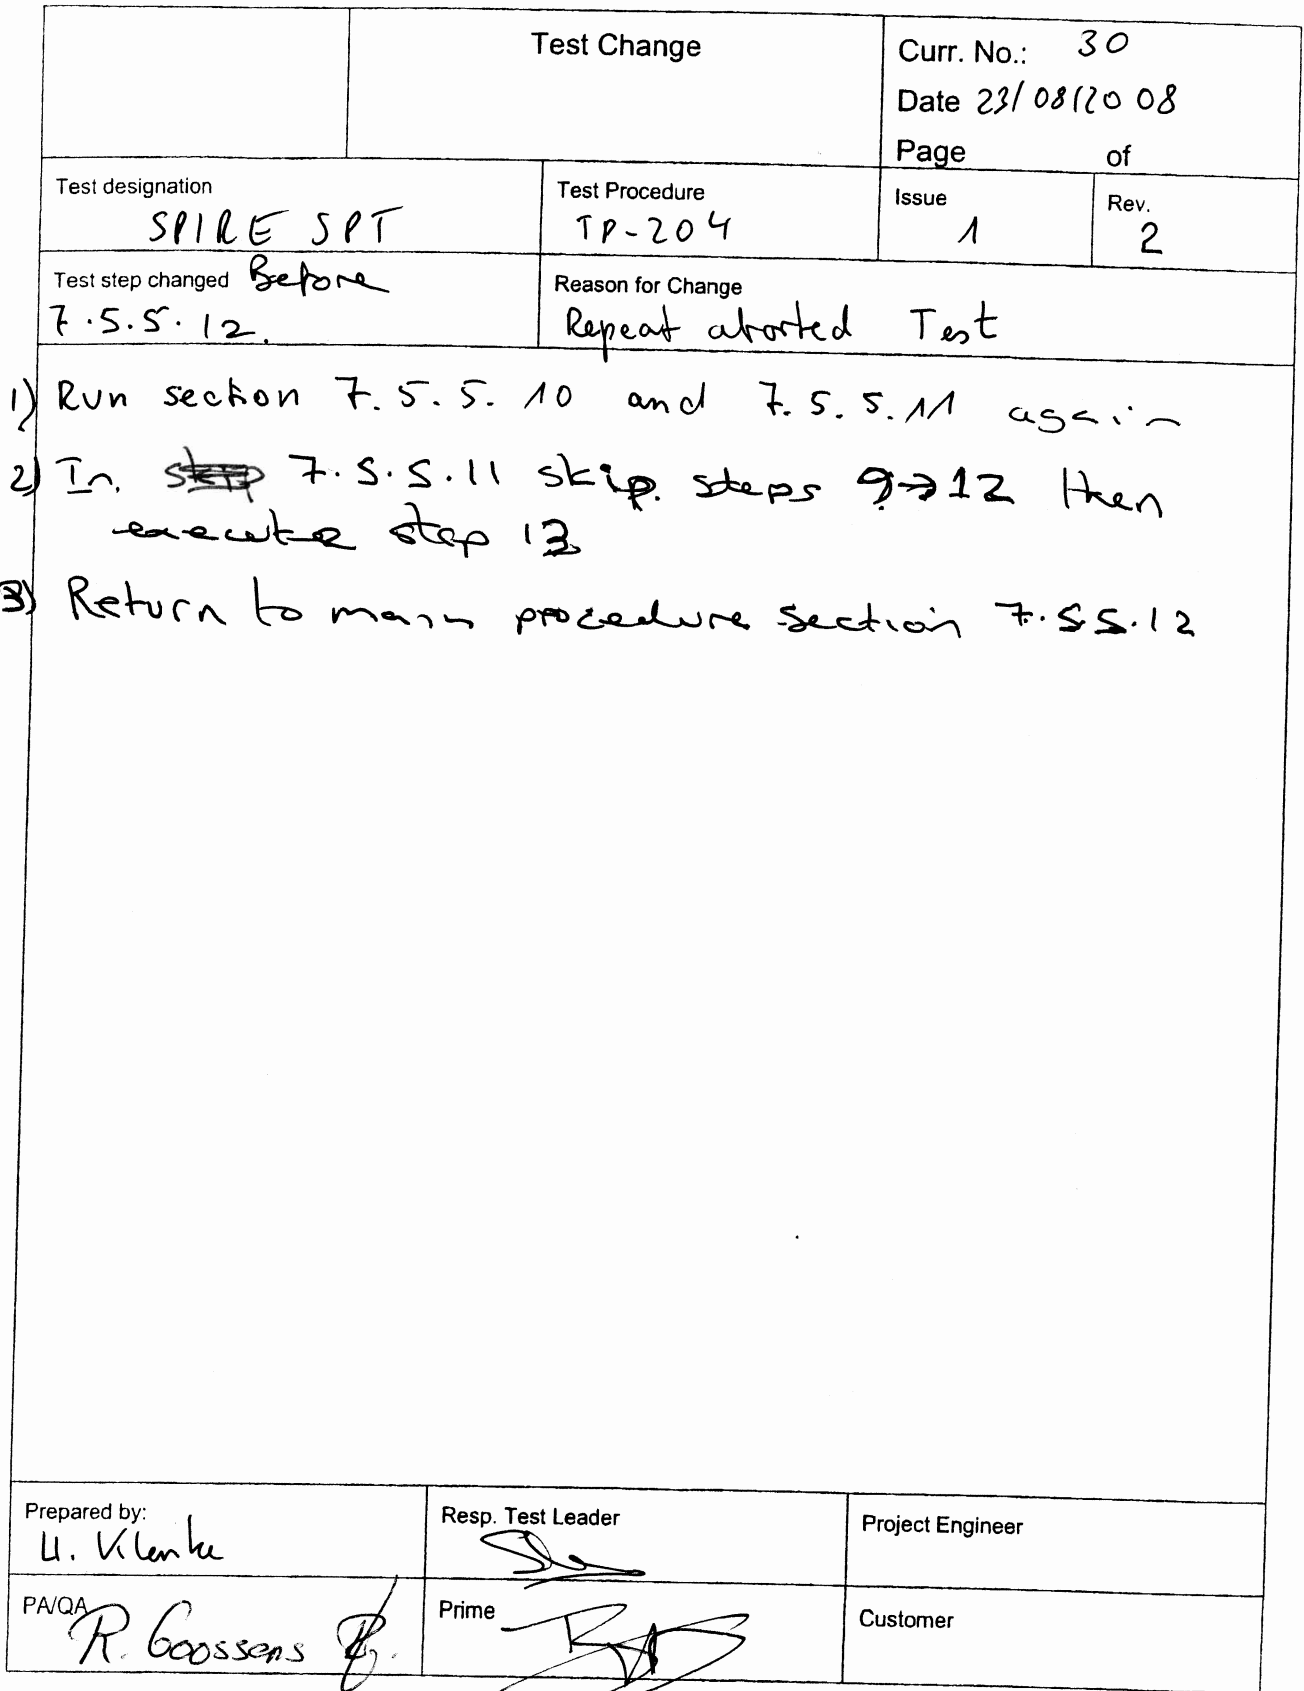 Test Change
Curr. No.: 30
Date 23/08/2008
Page of
Test designation
SPIRE SPT
Test Procedure
TP-204
Issue
1
Rev.
2
Test step changed Before
7.5.5.12.
Reason for Change
Repeat aborted Test
1) Run section 7.5.5.10 and 7.5.5.11 again
2) In 7.5.5.11 skip steps 9→12 then
execute step 13
3) Return to main procedure section 7.5.5.12
Prepared by:
Resp. Test Leader
Project Engineer
PA/QA
R. Goossens
Prime
Customer